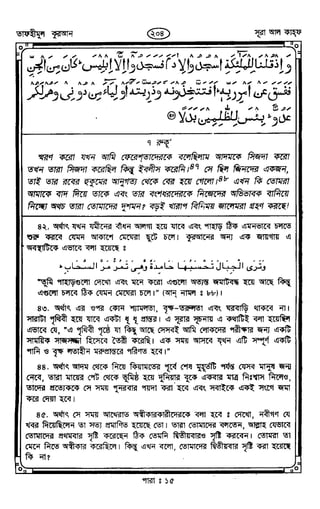 তাফহীমুল কুরআন
২০৪
সূরা আল কাহফ
وَإِذْ قُلْنَا لِلْمَلَٰٓئِكَةِ ٱسْجُدُوا۟ لِءَادَمَ فَسَجَدُوٓا۟ إِلَّآ إِبْلِيسَ كَانَ مِنَ ٱلْجِنِّ
فَفَسَقَ عَنْ أَمْرِ رَبِّهِۦٓ أَفَتَتَّخِذُونَهُۥ وَذُرِّيَّتَهُۥٓ أَوْلِيَآءَ مِن دُونِى وَهُمْ لَكُمْ
عَدُوٌّۢ بِئْسَ لِلظَّٰلِمِينَ بَدَلًا
৭ রুকূ'
স্মরণ করো যখন আমি ফেরেশতাদেরকে বলেছিলাম আদমকে সিজদা করো
তখন তারা সিজদা করেছিল কিন্তু ইবলীস করেনি। সে ছিল জিনদের একজন,
তাই তার রবের হুকুমের আনুগত্য থেকে বের হয়ে গেলো। এখন কি তোমরা
আমাকে বাদ দিয়ে তাকে এবং তার বংশধরদেরকে নিজেদের অভিভাবক বানিয়ে
নিচ্ছো অথচ তারা তোমাদের দুশমন? বড়ই খারাপ বিনিময় জালেমরা গ্রহণ করছে!
৪২. অর্থাৎ যখন যমীনের বাঁধন আলগা হয়ে যাবে এবং পাহাড় ঠিক এমনভাবে চলতে
শুরু করবে যেমন আকাশে মেঘেরা ছুটে চলে। কুরআনের অন্য এক জায়গায় এ
অবস্থাটিকে এভাবে বলা হয়েছে :
وَتَرَى الْجِبَالَ تَحْسَبُهَا جَامِدَةً وَّهِيَ تَمُرُّ مَرَّ السَّحَابِ
"তুমি পাহাড়গুলো দেখো এবং মনে করো এগুলো অত্যন্ত জমাটবদ্ধ হয়ে আছে কিন্তু
এগুলো চলবে ঠিক যেমন মেঘেরা চলে।" (আন নামল : ৮৮)।
৪৩. অর্থাৎ এর ওপর কোন শ্যামলতা,
৪৪. অর্থাৎ আদম থেকে নিয়ে কিয়ামতের পূর্বে শেষ মুহূর্তটি পর্যন্ত যেসব মানুষ জন্ম
নেবে, তারা মায়ের পেট থেকে ভূমিষ্ঠ হয়ে দুনিয়ার বুকে একবার মাত্র নিঃশ্বাস নিলেও,
তাদের প্রত্যেককে সে সময় পুনরবার পয়দা করা হবে এবং সবাইকে একই সংগে জমা
করে দেয়া হবে।
৪৫. অর্থাৎ সে সময় আখেরাত অস্বীকারকারীদেরকে বলা হবে : দেখো, নবীগণ যে
খবর দিয়েছিলেন তা সত্য প্রমাণিত হয়েছে তো। তারা তোমাদের বলতেন, আল্লাহ যেভাবে
তোমাদের প্রথমবার সৃষ্টি করেছেন ঠিক তেমনি দ্বিতীয়বারও সৃষ্টি করবেন। তোমরা তা
মেনে নিতে অস্বীকার করেছিলে। কিন্তু এখন বলো, তোমাদের দ্বিতীয়বার সৃষ্টি করা হয়েছে
কি না?
পারা : ১৫